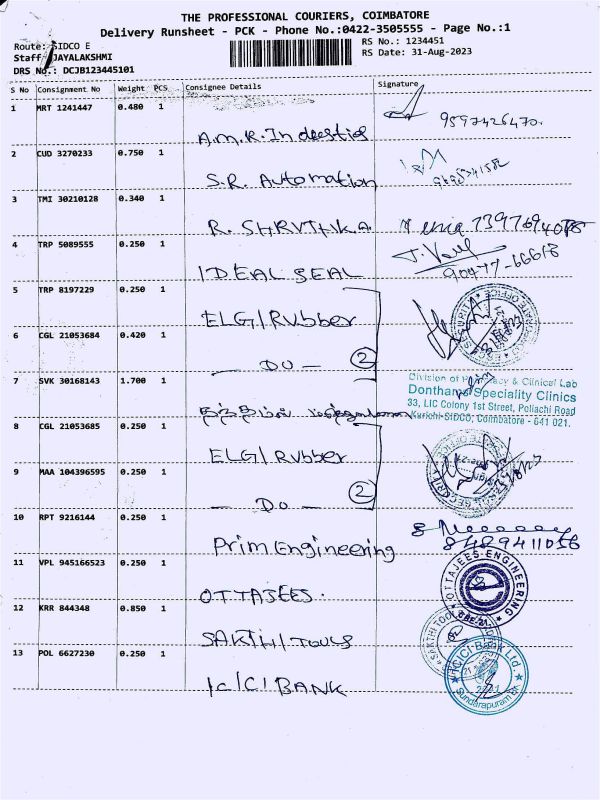 THE PROFESSIONAL COURIERS, COIMBATORE
Delivery Runsheet - PCK - Phone No.:0422-3505555 - Page No.:1
Route: SIDCO E
RS No.: 1234451
Staff: JAYALAKSHMI
RS Date: 31-Aug-2023
DRS No.: DCJB123445101
S No Consignment No Weight PCS Consignee Details Signature
1 MRT 1241447 0.480 1
A.M.R. Industries 9597426470.
2 CUD 3270233 0.750 1
S.R. Automation
3 TMI 30210128 0.340 1
R. SHRVTHIKA
4 TRP 5089555 0.250 1
IDEAL SEAL 90477-66618
5 TRP 8197229 0.250 1
ELGI Rubber
6 CGL 21053684 0.420 1
— DO — 2
7 SVK 30168143 1.700 1
Division of Pharmacy & Clinical Lab
Donthams Speciality Clinics
33, LIC Colony 1st Street, Pollachi Road
Kurichi-SIDCO, Coimbatore - 641 021.
8 CGL 21053685 0.250 1
ELGI Rubber
9 MAA 104396595 0.250 1
— DO — 2
10 RPT 9216144 0.250 1
Prim Engineering 8489411056
11 VPL 945166523 0.250 1
OTTAJEES.
OTTAJEES ENGINEERING
CBE-21
12 KRR 844348 0.850 1
SAKTHI TOOLS
SAKTHI TOO
13 POL 6627230 0.250 1
ICICI BANK
ICICI Bank Ltd.
Sundarapuram